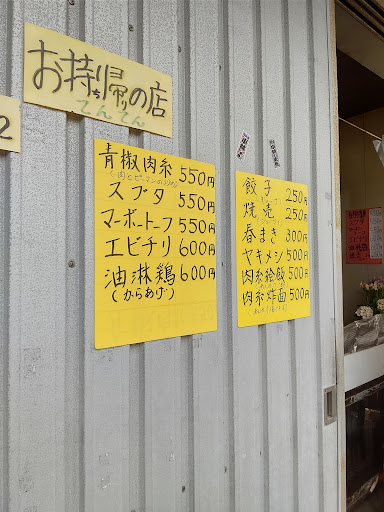 お持ち帰りの店
てんてん
2
青椒肉糸 550円
スブタ 550円
マーボートーフ 550円
エビチリ 600円
油淋鶏 600円
(からあげ)
餃子 250円
焼売 250円
春まき 300円
ヤキメシ 500円
肉糸絵飯 500円
肉糸炸面 500円